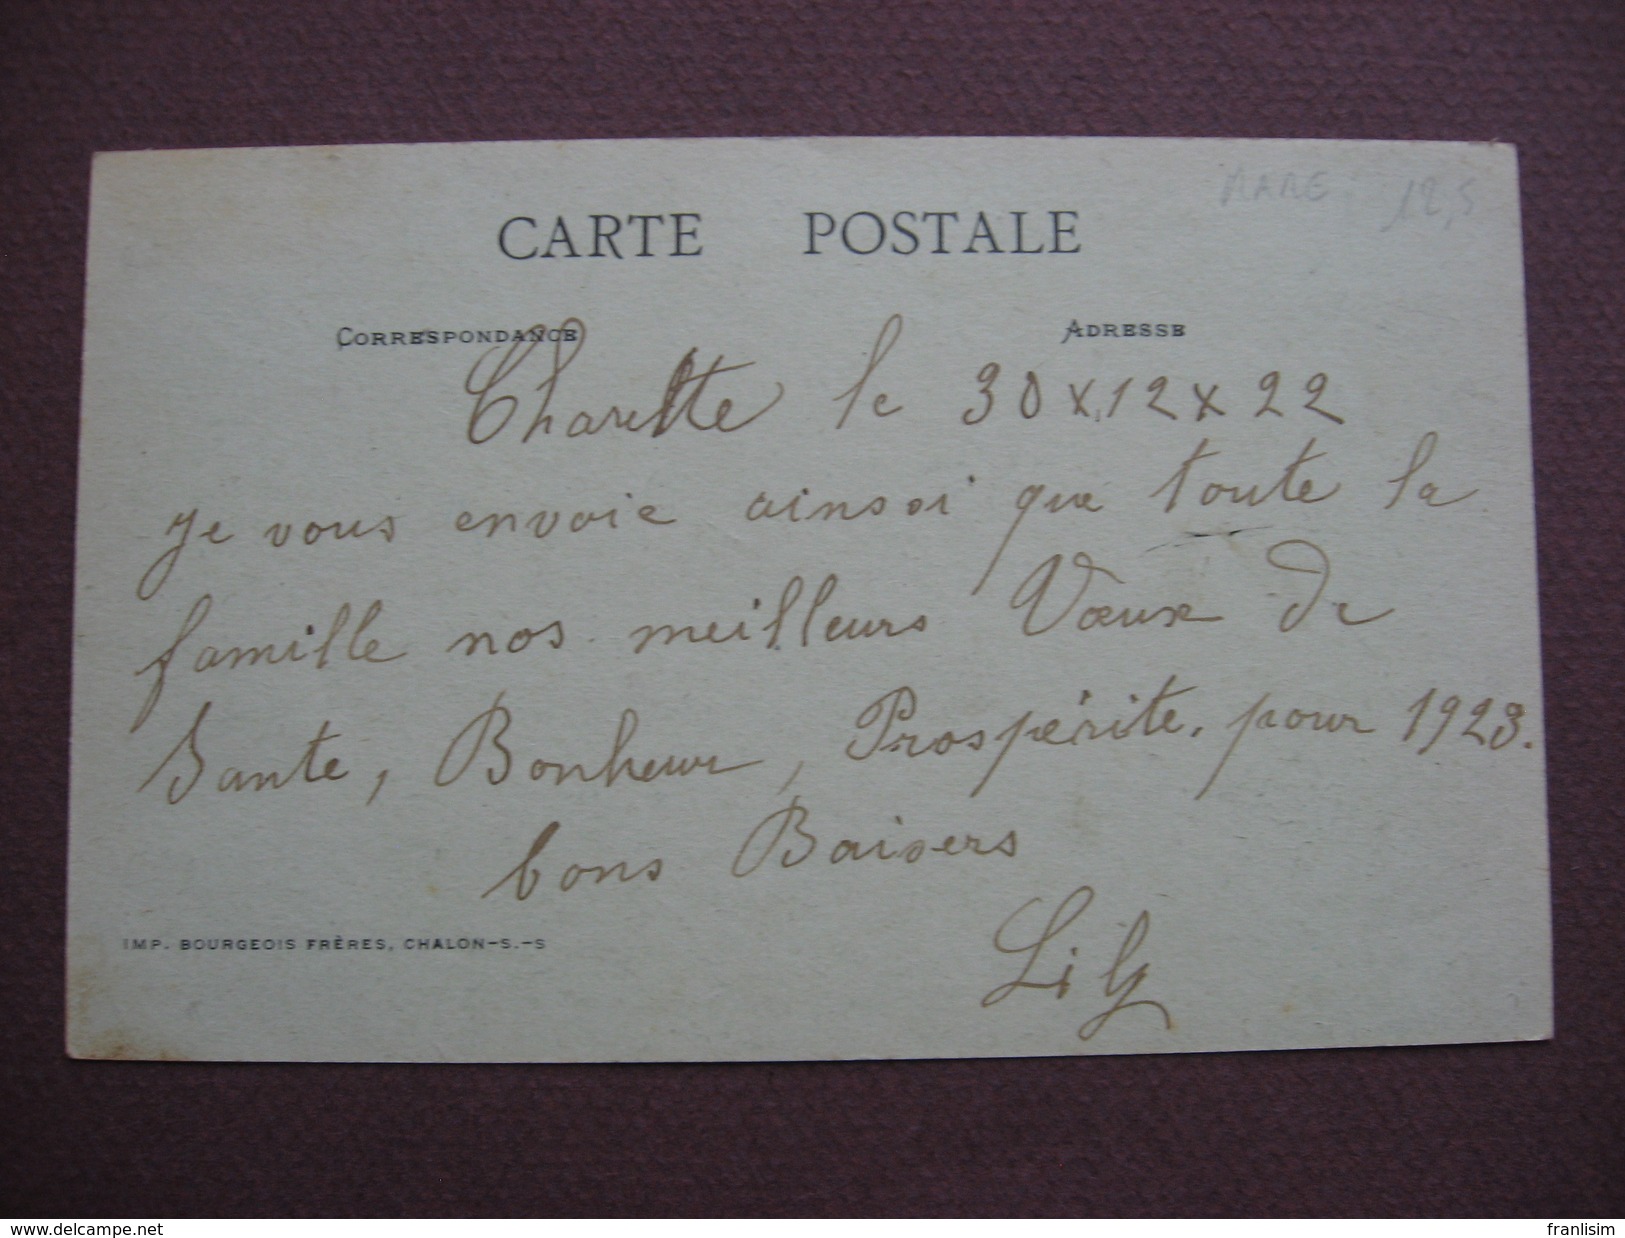 RARE 12,5
CARTE POSTALE
CORRESPONDANCE ADRESSE
Charette le 30 x 12 x 22
Je vous envoie ainsi que toute la
famille nos meilleurs Vœux de
Sante, Bonheur, Prospérite, pour 1923.
bons Baisers
Lily
IMP. BOURGEOIS FRÈRES, CHALON-S.-S
www.delcampe.net franlisim